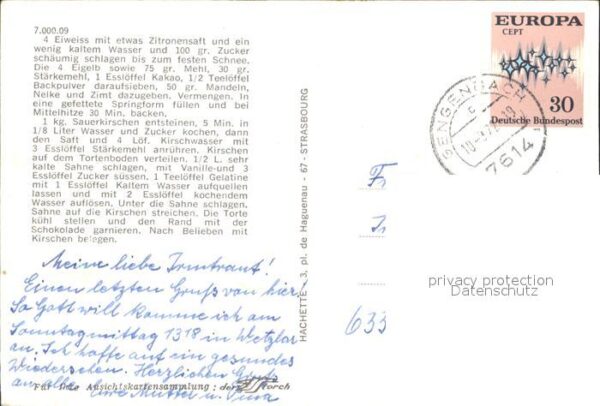 7.000.09
4 Eiweiss mit etwas Zitronensaft und ein
wenig kaltem Wasser und 100 gr. Zucker
schäumig schlagen bis zum festen Schnee.
Die 4 Eigelb sowie 75 gr. Mehl, 30 gr.
Stärkemehl, 1 Esslöffel Kakao, 1/2 Teelöffel
Backpulver daraufsieben, 50 gr. Mandeln,
Nelke und Zimt dazugeben. Vermengen. In
eine gefettete Springform füllen und bei
Mittelhitze 30 Min. backen.
1 kg. Sauerkirschen entsteinen, 5 Min. in
1/8 Liter Wasser und Zucker kochen, dann
den Saft und 4 Löf. Kirschwasser mit
3 Esslöffel Stärkemehl anrühren. Kirschen
auf dem Tortenboden verteilen. 1/2 L. sehr
kalte Sahne schlagen, mit Vanille-und 3
Esslöffel Zucker süssen. 1 Teelöffel Gelatine
mit 1 Esslöffel Kaltem Wasser aufquellen
lassen und mit 2 Esslöffel kochendem
Wasser auflösen. Unter die Sahne schlagen.
Sahne auf die Kirschen streichen. Die Torte
kühl stellen und den Rand mit der
Schokolade garnieren. Nach Belieben mit
Kirschen belegen.
Meine liebe Irmtraut!
Einen letzten Gruß von hier.
So Gott will komme ich am
Sonntagmittag 1318 in Wetzlar
an. Ich hoffe auf ein gesundes
Wiedersehen. Herzlichen Gruß
an alle Eure Mutter u.
Für Ihre Ansichtskartensammlung : der Storch
HACHETTE - 3, pl. de Haguenau - 67 - STRASBOURG
EUROPA
CEPT
30
Deutsche Bundespost
SENGENBACH
c
7614
Fr
Ir
633
privacy protection
Datenschutz